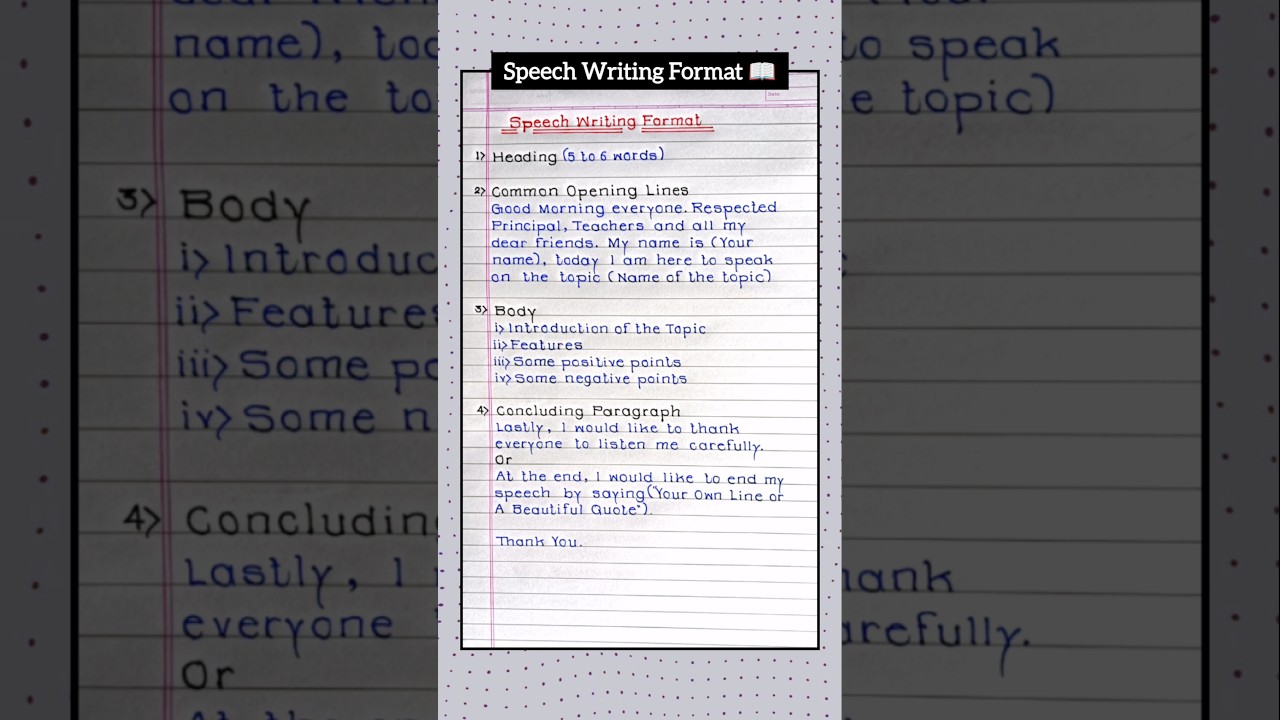 Speech Writing Format 📖
Date:
Speech Writing Format
1> Heading (5 to 6 words)
2> Common Opening Lines
Good Morning everyone. Respected
Principal, Teachers and all my
dear friends. My name is (Your
name), today I am here to speak
on the topic (Name of the topic)
3> Body
i> Introduction of the Topic
ii> Features
iii> Some positive points
iv> Some negative points
4> Concluding Paragraph
Lastly, I would like to thank
everyone to listen me carefully.
Or
At the end, I would like to end my
speech by saying ("Your Own Line or
A Beautiful Quote").
Thank You.